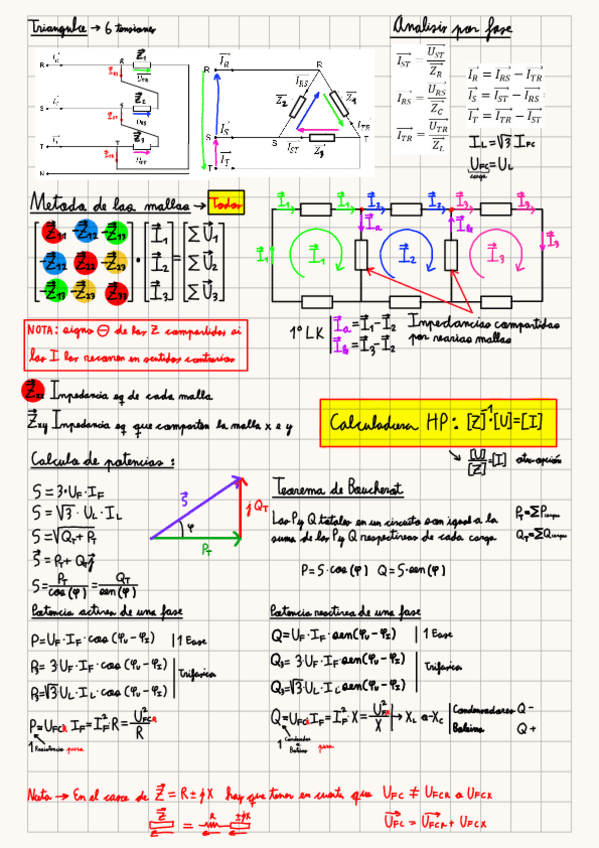 Triangulo → 6 tensiones
Analisis por fase
I_ST = U_ST / Z_R
I_RS = U_RS / Z_C
I_TR = U_TR / Z_L
I_R = I_RS − I_TR
I_S = I_ST − I_RS
I_T = I_TR − I_ST
I_L = √3 I_FC
U_FC = U_L
carga
R S T N
Z1 Z2 Z3
R S T
I_R I_S I_T
I_RS I_TR I_ST
Z2 Z1 Z3
Metodo de las mallas → Todos
[Z11 -Z12 -Z13] [I1] [ΣU1]
[-Z12 Z22 -Z23] · [I2] = [ΣU2]
[-Z13 -Z23 Z33] [I3] [ΣU3]
I1 I1 I2 I2 I3 I3
Ia Ib
I1 I1 I2 I3 I3
NOTA: signo ⊖ de las Z compartidas si
las I las recorren en sentidos contrarios
1º LK | Ia = I1 - I2
Ib = I3 - I2
Impedancias compartidas
por varias mallas
Zxx Impedancia eq de cada malla
Zxy Impedancia eq que comparten la malla x e y
Calculadora HP: [Z]^-1·[U]=[I]
↘ [U]/[Z] = [I] otra opción
Calculo de potencias:
S = 3·U_F·I_F
S = √3·U_L·I_L
S = √Q_T + P_T
S = P_T + Q_T j
S = P_T / cos(φ) = Q_T / sen(φ)
S φ P_T jQ_T
Teorema de Boucherot
Las P y Q totales en un circuito son igual a la
suma de las P y Q respectivas de cada carga
P_T = ΣP cargas
Q_T = ΣQ cargas
P = S·cos(φ) Q = S·sen(φ)
Potencia activa de una fase
P = U_F·I_F·cos(φu - φI) | 1 Fase
P3 = 3·U_F·I_F·cos(φu - φI)
P3 = √3·U_L·I_L·cos(φu - φI)
Trifasica
P = U_FCR I_F = I_F²·R = U²_FCR / R
1 Resistencia pura
Potencia reactiva de una fase
Q = U_F·I_F·sen(φu - φI) | 1 Fase
Q3 = 3·U_F·I_F·sen(φu - φI)
Q3 = √3·U_L·I_L·sen(φu - φI)
Trifasica
→ X_L o -X_C | Condensadores Q -
Bobina Q +
1 Condensador o Bobina pura
Nota → En el caso de Z = R ± jX hay que tener en cuenta que U_FC ≠ U_FCR o U_FCX
Z = R ±jX
U_FC = U_FCR + U_FCX